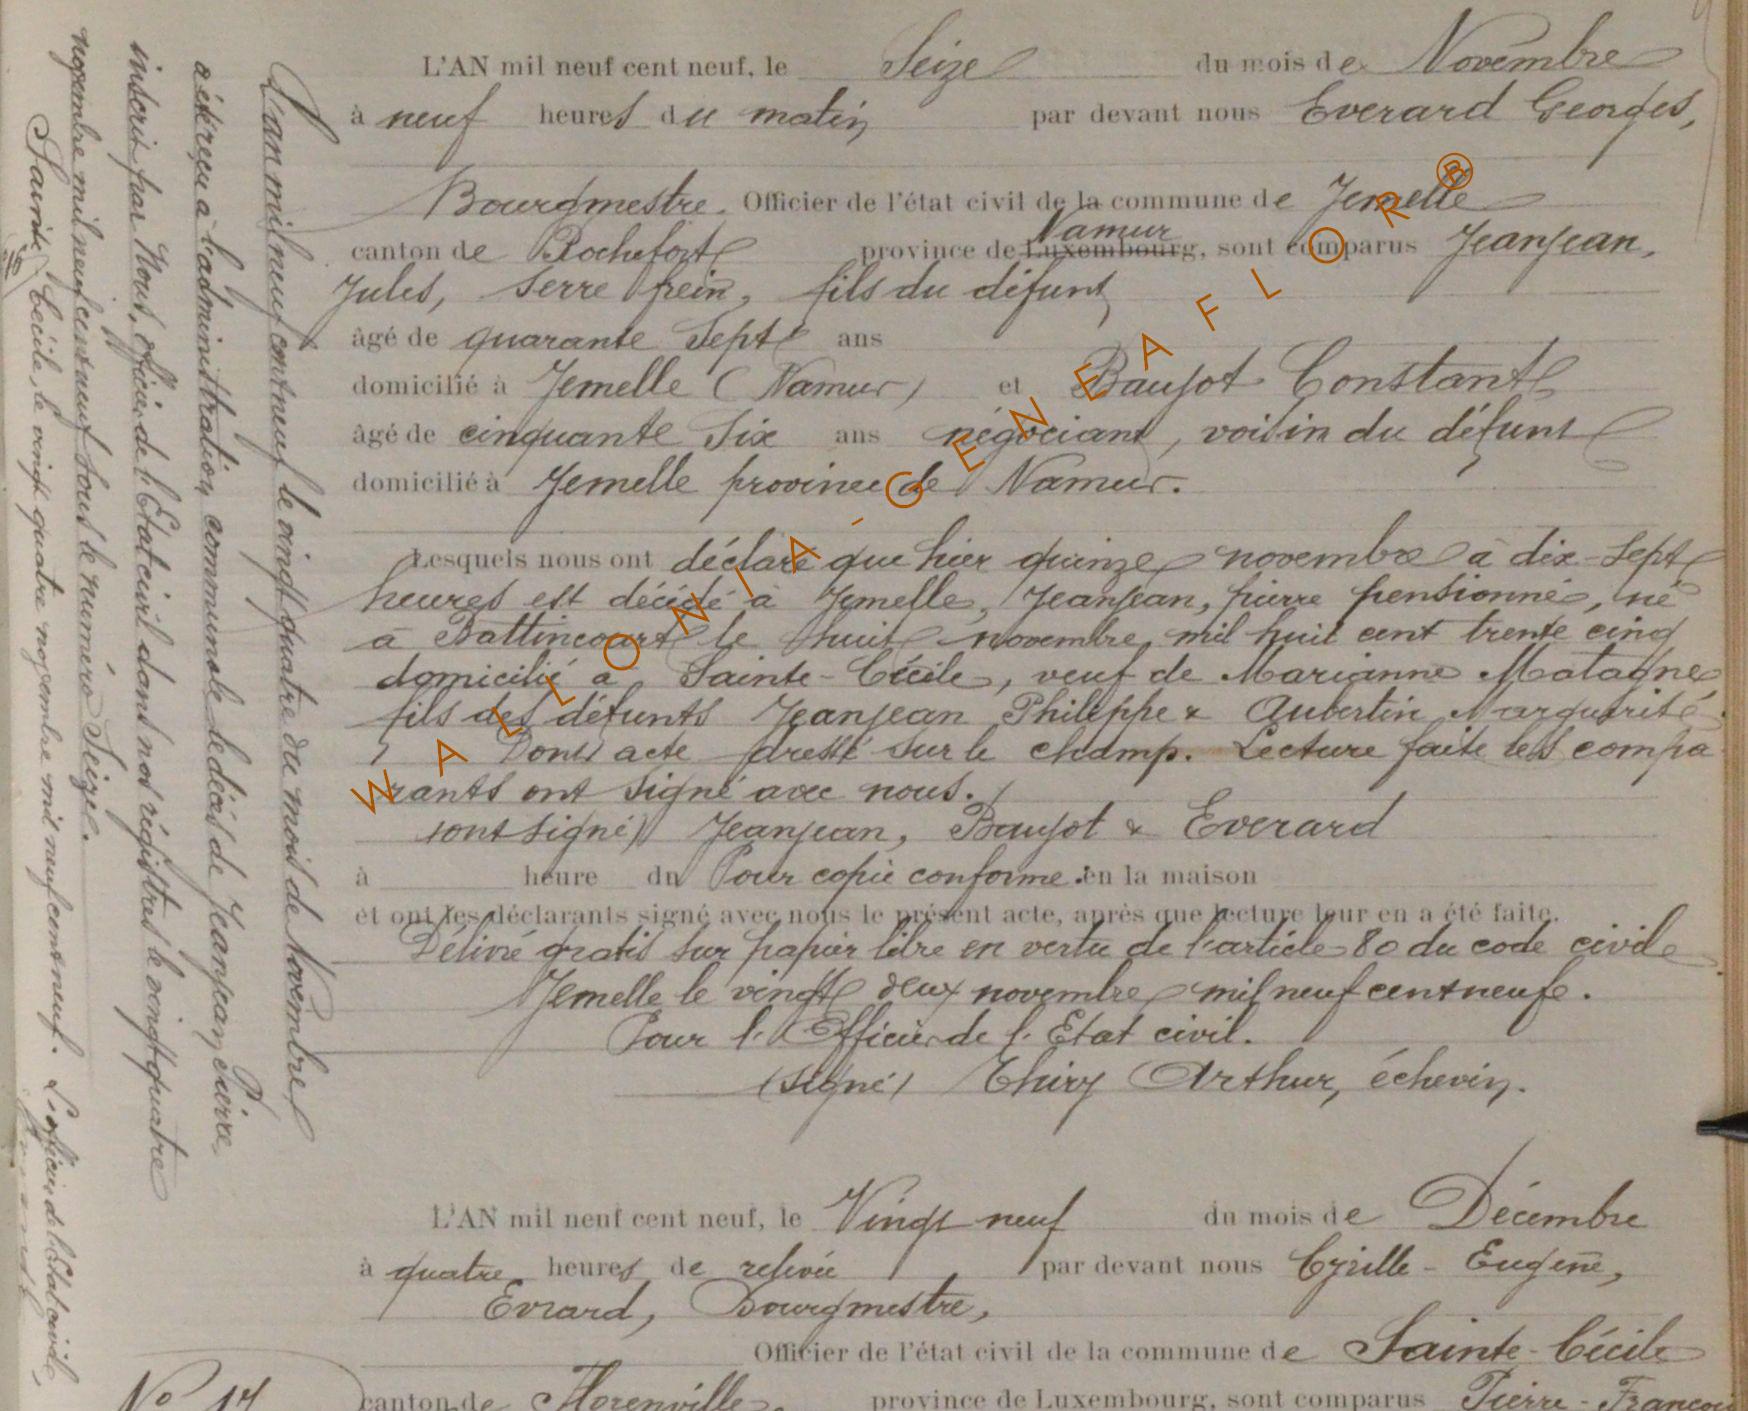 L'AN mil neuf cent neuf, le Seize du mois de Novembre
à neuf heures du matin par devant nous Everard Georges,
Bourgmestre. Officier de l'état civil de la commune de Jemelle
canton de Rochefort province de Luxembourg, Namur sont comparus Jeanjean,
Jules, serre frein, fils du défunt
âgé de quarante sept ans
domicilié à Jemelle (Namur) et Baujot Constant
âgé de cinquante six ans négociant, voisin du défunt
domicilié à Jemelle province de Namur.
Lesquels nous ont déclaré que hier quinze novembre à dix-sept
heures est décédé à Jemelle, Jeanjean, pierre pensionné, né
à Battincourt le huit novembre mil huit cent trente cinq
domicilié à Sainte-Cécile, veuf de Marianne Matagne
fils des défunts Jeanjean Philippe & Aubertin Marguerite.
Dont acte dressé sur le champ. Lecture faite les compa
rants ont signé avec nous.
sont signé) Jeanjean, Baujot & Everard
à heure du Pour copie conforme. en la maison
et ont les déclarants signé avec nous le présent acte, après que lecture leur en a été faite.
Délivré gratis sur papier libre en vertu de l'article 80 du code civil
Jemelle le vingt deux novembre mil neuf cent neuf.
Pour l'Officier de l'Etat civil.
(signé) Thiry Arthur, échevin.
L'an mil neuf cent neuf le vingt quatre du mois de Novembre
a été reçu à l'administration communale le décès de Jeanjean Pierre
inscrit par Nous, officier de l'Etat civil dans nos régistres le vingt quatre
novembre mil neuf cent neuf sous le numéro Seize.
Sainte Cécile, le vingt quatre novembre mil neuf cent neuf. L'officier de l'Etat civil,
L'AN mil neuf cent neuf, le Vingt neuf du mois de Décembre
à quatre heures de relevée par devant nous Cyrille-Eugène,
Evrard, Bourgmestre,
Officier de l'état civil de la commune de Sainte-Cécile
No 17 canton de Florenville province de Luxembourg, sont comparus Pierre-François
WALLONIA-GENEAFLOR®